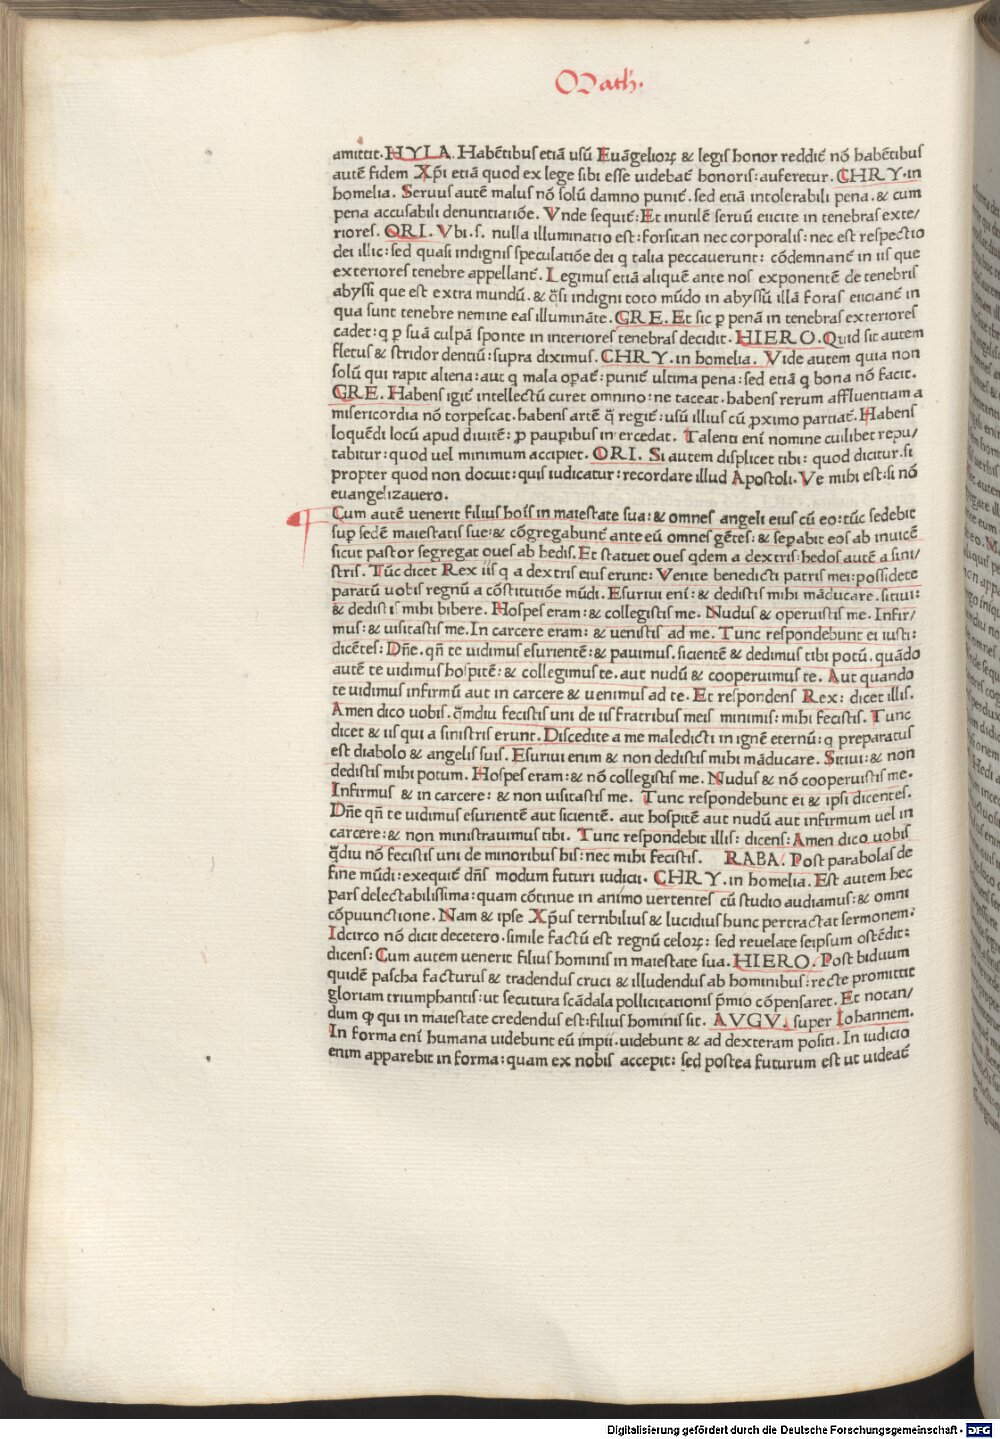 Math.
amittit. HYLA. Habẽtibus etiã usũ Euãgelioꝝ & legis honor reddit᷑ nõ habẽtibus
autẽ fidem Xp̃i etiã quod ex lege sibi esse uidebat᷑ honoris: auferetur. CHRY. in
homelia. Seruus autẽ malus nõ solũ damno punit᷑. sed etiã intolerabili pena. & cum
pena accusabili denuntiatiõe. Vnde sequit᷑: Et inutilẽ seruũ eiicite in tenebras exte/
riores. ORI. Vbi. s. nulla illuminatio est: forsitan nec corporalis: nec est respectio
dei illic: sed quasi indignis speculatiõe dei q talia peccauerunt: cõdemnant᷑ in iis que
exteriores tenebre appellant᷑. Legimus etiã aliquẽ ante nos exponentẽ de tenebris
abyssi que est extra mundũ. & q̃si indigni toto mũdo in abyssũ illã foras eiiciant᷑ in
qua sunt tenebre nemine eas illuminãte. GRE. Et sic ꝑ penã in tenebras exteriores
cadet: q ꝑ suã culpã sponte in interiores tenebras decidit. HIERO. Quid sit autem
fletus & stridor dentiũ: supra diximus. CHRY. in homelia. Vide autem quia non
solũ qui rapit aliena: aut q mala oꝑat᷑: punit᷑ ultima pena: sed etiã q bona nõ facit.
GRE. Habens igit᷑ intellectũ curet omnino: ne taceat. habens rerum affluentiam a
misericordia nõ torpescat. habens artẽ q̃ regit᷑: usũ illius cũ ꝓximo partiat᷑. Habens
loquẽdi locũ apud diuitẽ: ꝓ pauꝑibus intercedat. Talenti enĩ nomine cuilibet repu/
tabitur: quod uel minimum accipiet. ORI. Si autem displicet tibi: quod dicitur. si
propter quod non docuit: quis iudicatur: recordare illud Apostoli. Ve mihi est: si nõ
euangelizauero.
Cum autẽ uenerit filius hoĩs in maiestate sua: & omnes angeli eius cũ eo: tũc sedebit
suꝑ sedẽ maiestatis sue: & cõgregabunt᷑ ante eũ omnes gẽtes: & seꝑabit eos ab inuicẽ
sicut pastor segregat oues ab hedis. Et statuet oues qdem a dextris: hedos autẽ a sini/
stris. Tũc dicet Rex iis q a dextris eius erunt: Venite benedicti patris mei: possidete
paratũ uobis regnũ a cõstitutiõe mũdi. Esuriui enĩ: & dedistis mihi mãducare. sitiui:
& dedistis mihi bibere. Hospes eram: & collegistis me. Nudus & operuistis me. Infir/
mus: & uisitastis me. In carcere eram: & uenistis ad me. Tunc respondebunt ei iusti:
dicẽtes: Dñe. qñ te uidimus esurientẽ: & pauimus. sicientẽ & dedimus tibi potũ. quãdo
autẽ te uidimus hospitẽ: & collegimus te. aut nudũ & cooperuimus te. Aut quando
te uidimus infirmũ aut in carcere & uenimus ad te. Et respondens Rex: dicet illis.
Amen dico uobis. q̃mdiu fecistis uni de iis fratribus meis minimis: mihi fecistis. Tunc
dicet & iis qui a sinistris erunt. Discedite a me maledicti in ignẽ eternũ: q preparatus
est diabolo & angelis suis. Esuriui enim & non dedistis mihi mãducare. Sitiui: & non
dedistis mihi potum. Hospes eram: & nõ collegistis me. Nudus & nõ cooperuistis me.
Infirmus & in carcere: & non uisitastis me. Tunc respondebunt ei & ipsi dicentes.
Dñe qñ te uidimus esurientẽ aut sicientẽ. aut hospitẽ aut nudũ aut infirmum uel in
carcere: & non ministrauimus tibi. Tunc respondebit illis: dicens: Amen dico uobis
q̃diu nõ fecistis uni de minoribus his: nec mihi fecistis. RABA. Post parabolas de
fine mũdi: exequit᷑ dñs modum futuri iudicii. CHRY. in homelia. Est autem hec
pars delectabilissima: quam cõtinue in animo uertentes cũ studio audiamus: & omni
cõpunctione. Nam & ipse Xp̃us terribilius & lucidius hunc pertractat sermonem:
Idcirco nõ dicit decetero. simile factũ est regnũ celoꝝ: sed reuelate seipsum ostẽdit:
dicens: Cum autem uenerit filius hominis in maiestate sua. HIERO. Post biduum
quidẽ pascha facturus & tradendus cruci & illudendus ab hominibus: recte promittit
gloriam triumphantis: ut secutura scãdala pollicitationis p̃mio cõpensaret. Et notan/
dum ꝙ qui in maiestate credendus est: filius hominis sit. AVGV. super Iohannem.
In forma enĩ humana uidebunt eũ impii. uidebunt & ad dexteram positi. In iudicio
enim apparebit in forma: quam ex nobis accepit: sed postea futurum est ut uideat᷑
Digitalisierung gefördert durch die Deutsche Forschungsgemeinschaft - DFG